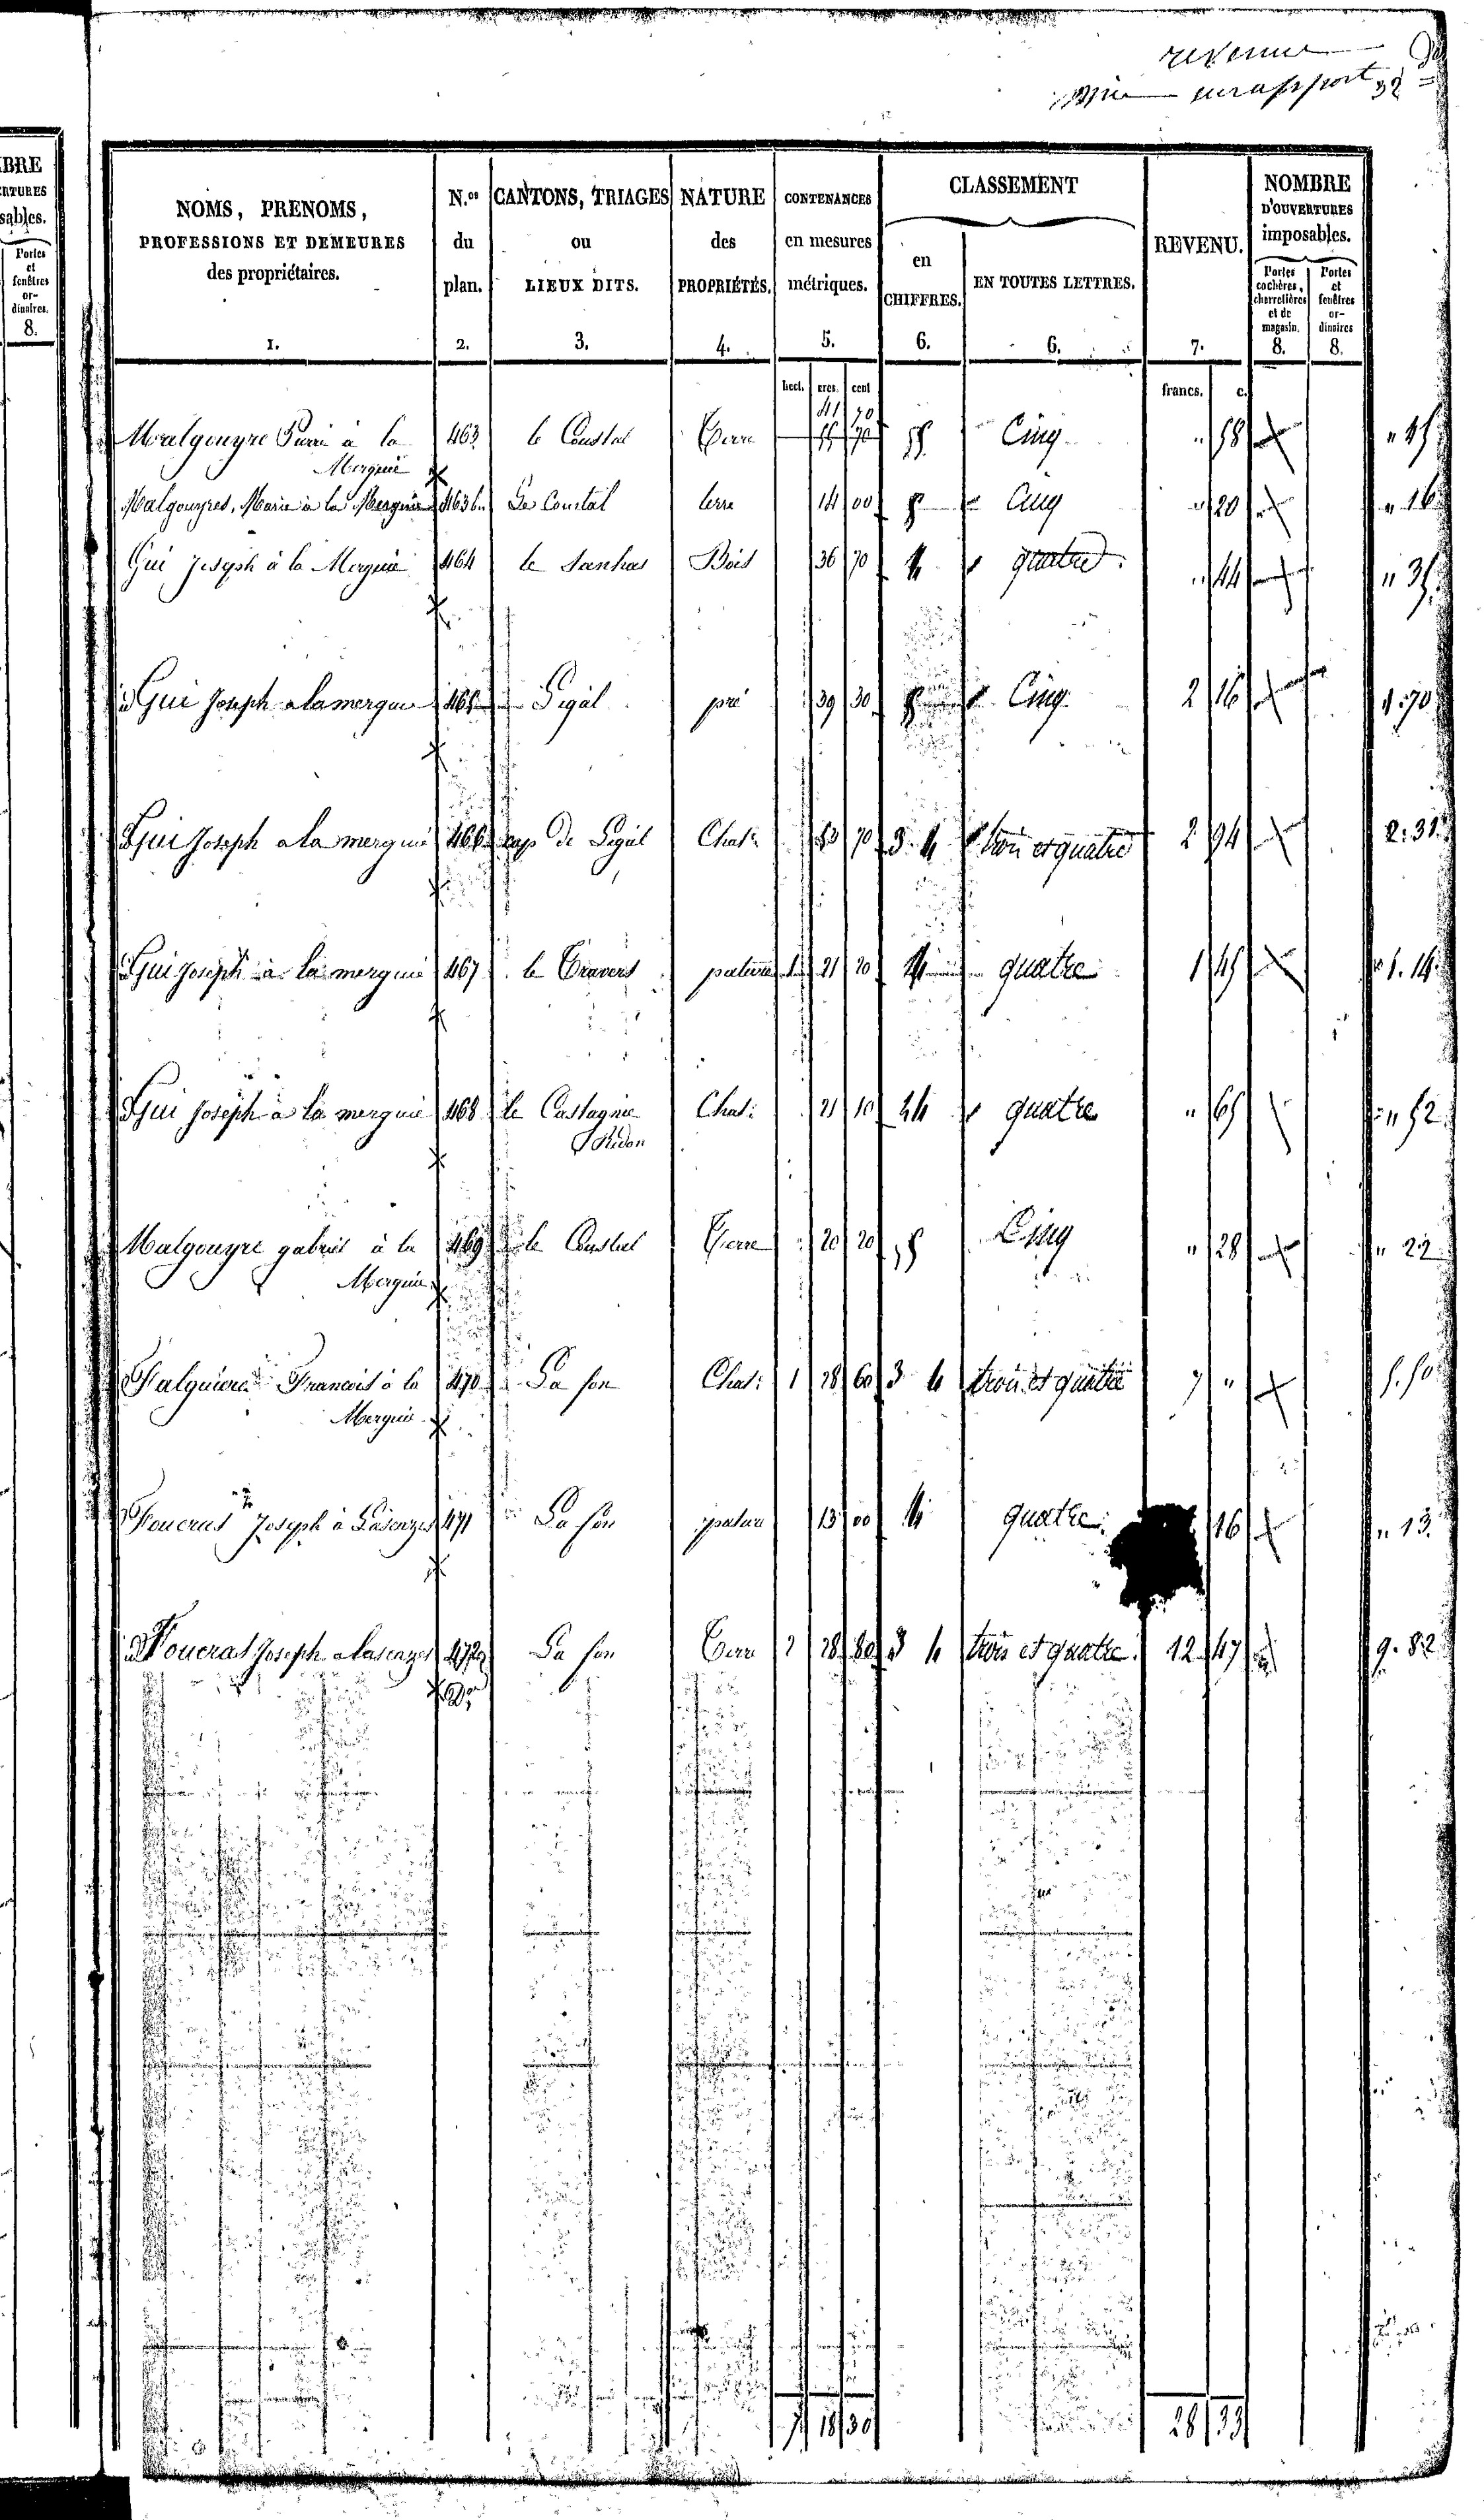 revenu
BRE
RTURES
sables.
Portes
et
fenêtres
or-
dinaires.
8.
NOMS, PRENOMS,
PROFESSIONS ET DEMEURES
des propriétaires.
1.
N.os
du
plan.
2.
CANTONS, TRIAGES
ou
LIEUX DITS.
3.
NATURE
des
PROPRIÉTÉS.
4.
CONTENANCES
en mesures
métriques.
5.
CLASSEMENT
en
CHIFFRES.
6.
EN TOUTES LETTRES.
6.
REVENU.
7.
NOMBRE
D'OUVERTURES
imposables.
Portes
cochères,
charretières
et de
magasin.
8.
Portes
et
fenêtres
or-
dinaires
8.
hect. ares. cent
francs. c.
41 70
Malgouyre à la 463 le Coustal Terre 5 Cinq " 58 " 45
Merguie
Malgouyres, Marie à la Merguie 463 b. Le Coustal terre 14 00 5 Cinq " 20 " 16
Gui Joseph à la Merguie 464 le Bois 36 70 4 quatre " 44 " 35
Gui Joseph a la mergue 465 Pégal pré 39 30 5 Cinq 2 16 1.70
Gui Joseph a la merguie 466 cap de Pégal Chat. 83 70 3. 4 trois et quatre 2 94 2.31
Gui Joseph à la merguie 467 le Travers pature 21 20 4 quatre 1 45 1.14
Gui Joseph à la merguie 468 le Castagnie Chat: 21 10 4 quatre " 65 " 52
Redon
Malgouyre gabriel à la 469 le Coustal Terre 20 20 5 Cinq " 28 " 22
Merguie
Falguiere Francois à la 470 La fon Chat: 1 28 60 3 4 trois et quatre 7 " 5.50
Merguie
Joseph à 471 La fon pature 13 00 4 quatre 16 " 13
Joseph 472 La fon Terre 2 28 80 3 4 trois et quatre 12 47 9.82
7 18 30 28 33